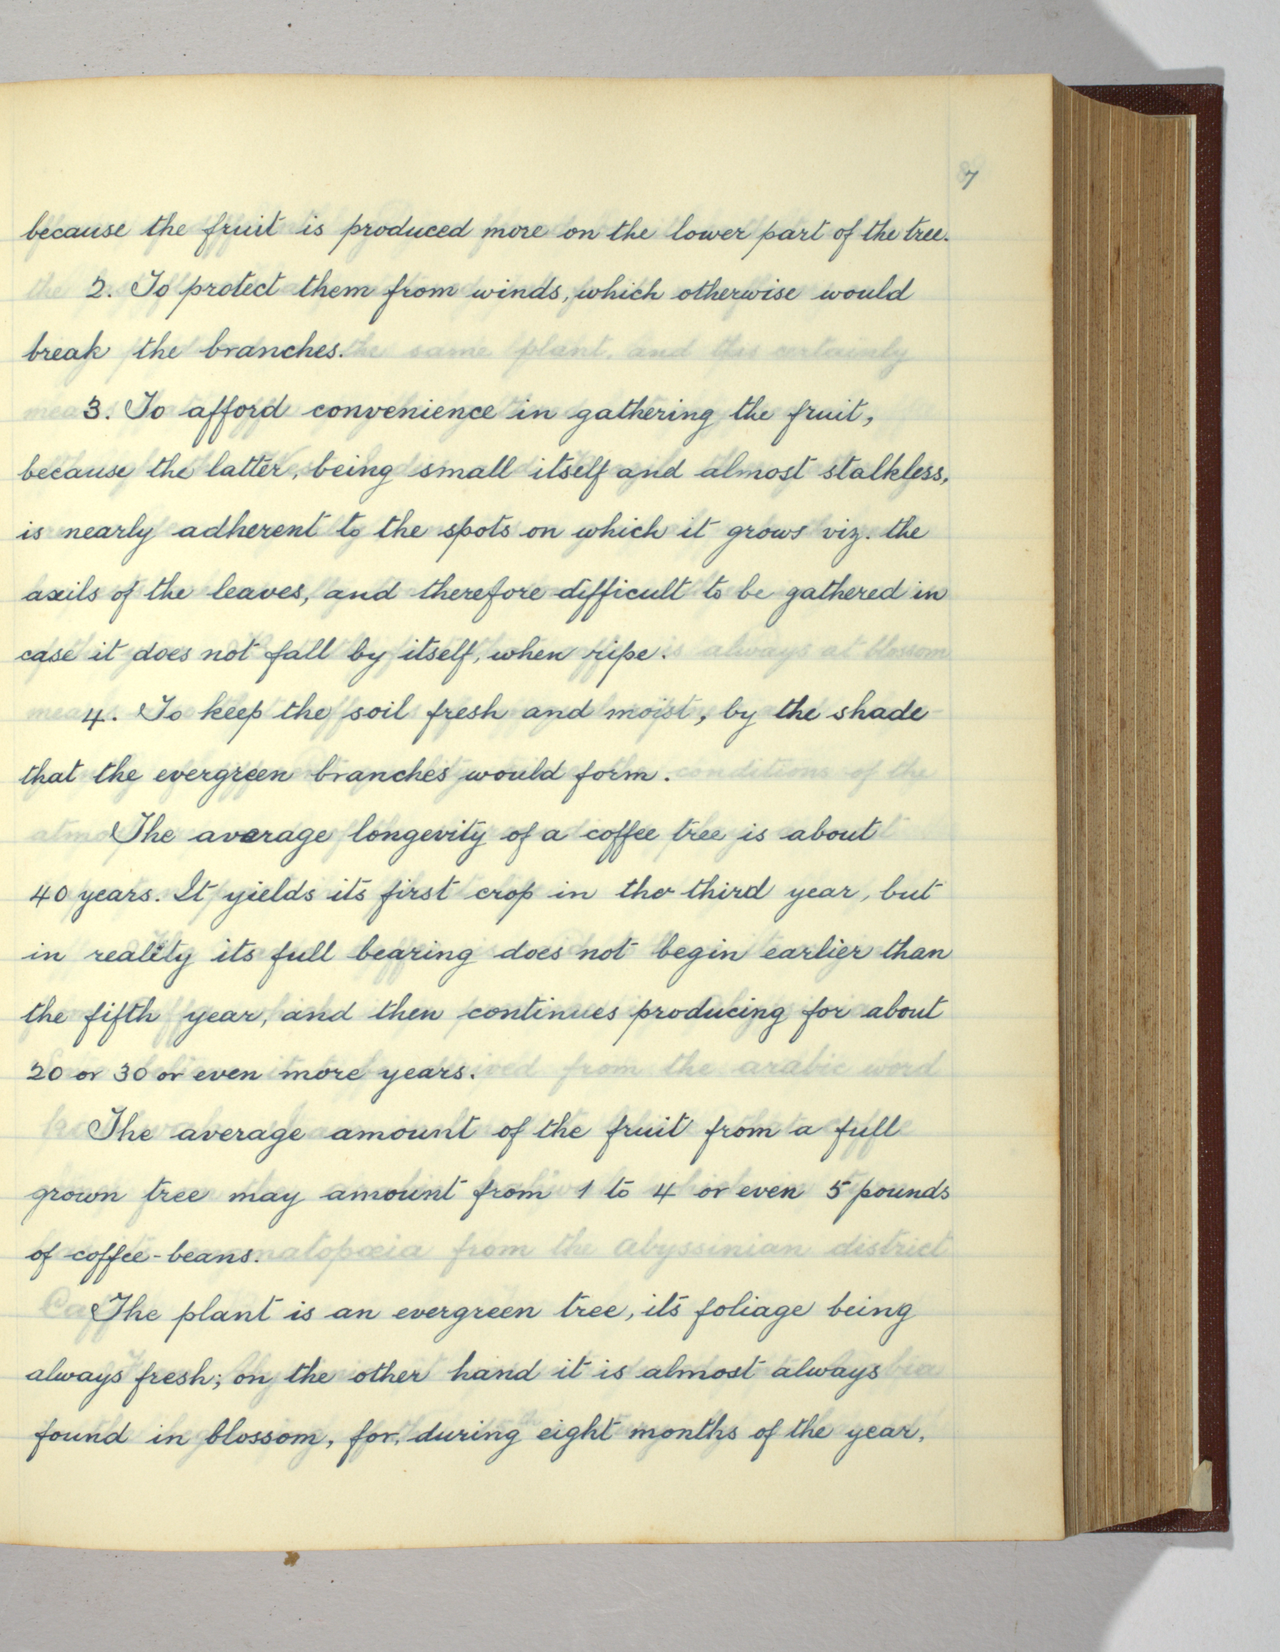 7
because the fruit is produced more on the lower part of the tree.
2. To protect them from winds, which otherwise would
break the branches.
3. To afford convenience in gathering the fruit,
because the latter, being small itself and almost stalkless,
is nearly adherent to the spots on which it grows viz. the
axils of the leaves, and therefore difficult to be gathered in
case it does not fall by itself, when ripe.
4. To keep the soil fresh and moist, by the shade
that the evergreen branches would form.
The average longevity of a coffee tree is about
40 years. It yields its first crop in the third year, but
in reality its full bearing does not begin earlier than
the fifth year, and then continues producing for about
20 or 30 or even more years.
The average amount of the fruit from a full
grown tree may amount from 1 to 4 or even 5 pounds
of coffee-beans.
The plant is an evergreen tree, its foliage being
always fresh; on the other hand it is almost always
found in blossom, for, during eight months of the year,